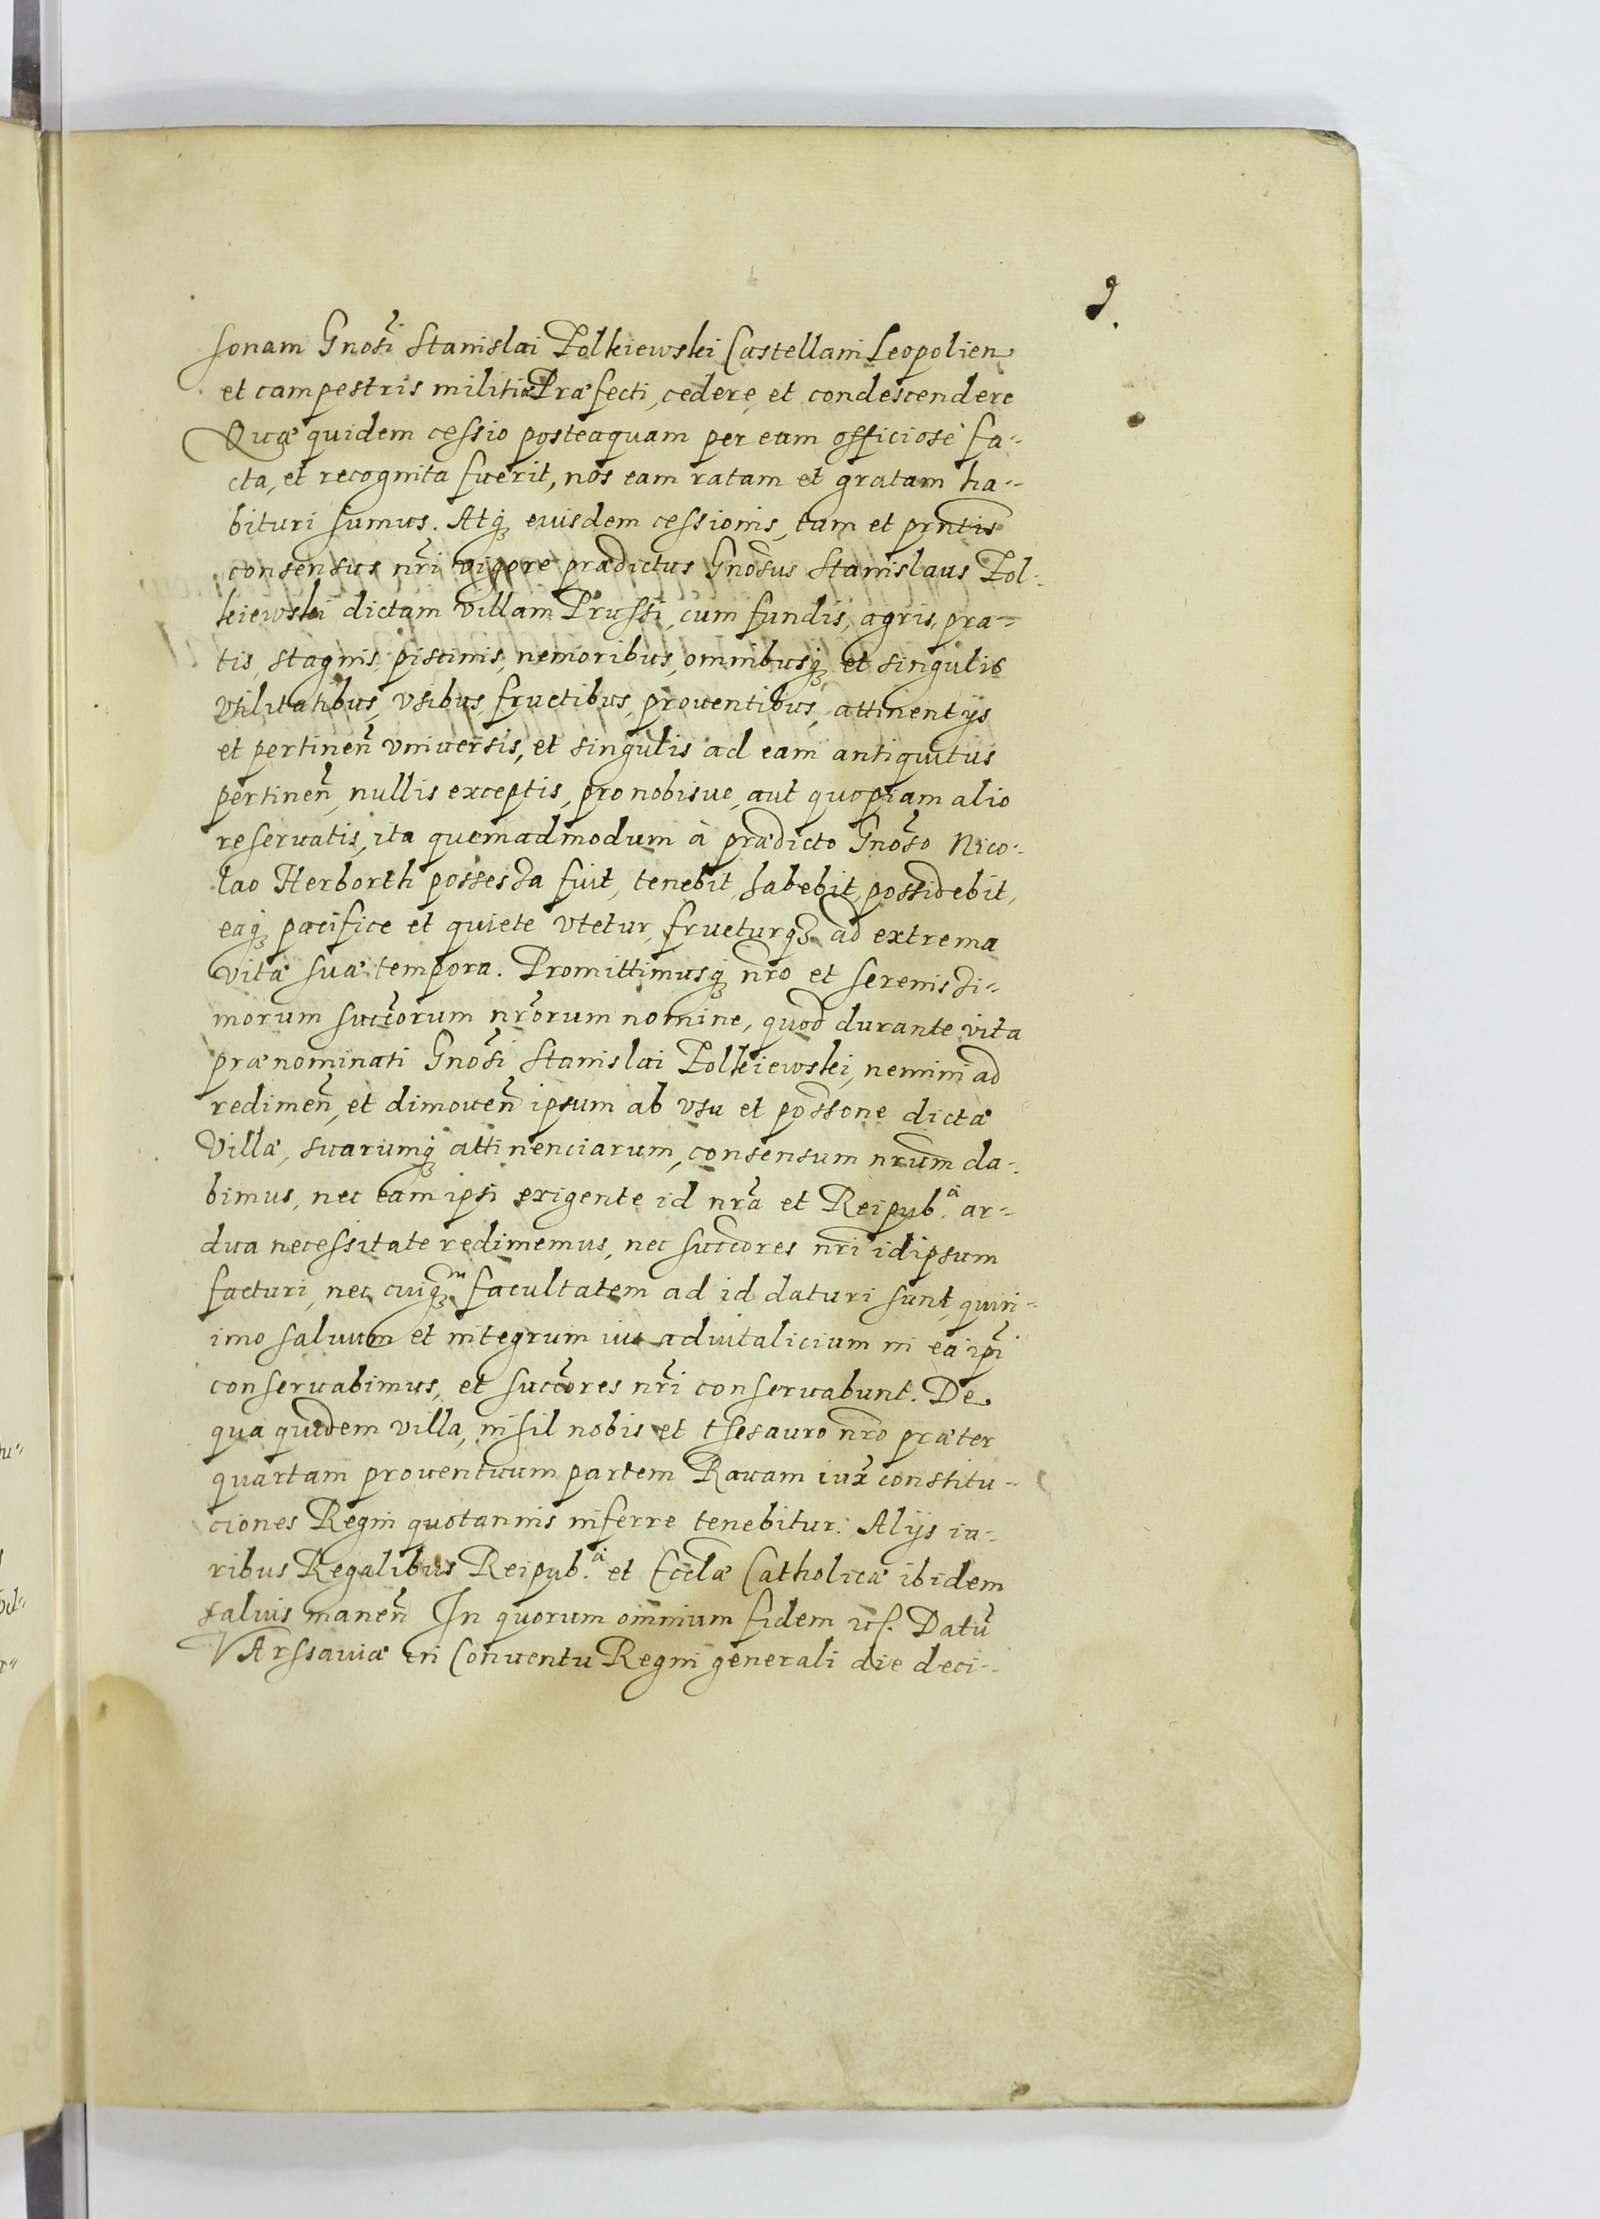 9.
sonam Gnosi Stanislai Zolkiewski Castellani Leopolien
et campestris militiæ Præfecti, cedere, et condescendere
Quæ quidem cessio posteaquam per eum officiosè fa-
cta, et recognita fuerit, nos eam ratam et gratam ha-
bituri sumus. Atq₃ eiusdem cessionis, tam et prntis
consensus nri vigore prædictus Gnosus Stanislaus Zol-
kiewski dictam villam Prussi, cum fundis, agris, pra-
tis, stagnis, piscinis, nemoribus, omnibusq₃ et singulis
vtilitatibus, vsibus, fructibus, prouentibus, attinentijs
et pertinen̄ vniuersis, et singulis ad eam antiquitus
pertinen̄, nullis exceptis, pro nobisue, aut quopiam alio
reseruatis, ita quemadmodum à prædicto Gnoso Nico-
lao Herborth possessa fuit, tenebit, habebit, possidebit,
eaq₃ pacifice et quiete vtetur, frueturq₃ ad extrema
vitæ suæ tempora. Promittimusq₃ nro et serenissi-
morum succorum nrorum nomine, quod durante vita
prænominati Gnosi Stanislai Zolkiewski, nemini ad
redimen̄, et dimouen̄ ipsum ab vsu et possone dictæ
Villæ, suarumq₃ attinenciarum, consensum nrum da-
bimus, nec eam ipsi exigente id nra et Reipub.ᵃ ar-
dua necessitate redimemus, nec succores nri idipsum
facturi, nec cuiq₃ᵐ facultatem ad id daturi sunt, quin-
imo saluum et integrum ius aduitalicium in ea ipi
conseruabimus, et succores nri conseruabunt. De
qua quidem villa, nihil nobis et thesauro nro præter
quartam prouentuum partem Rauam iux constitu-
ciones Regni quotannis inferre tenebitur. Alijs iu-
ribus Regalibus Reipub.ᵃ et Eccla Catholicæ ibidem
saluis manen̄ In quorum omnium fidem etc. Datū
VArssauiæ in Conuentu Regni generali die deci-